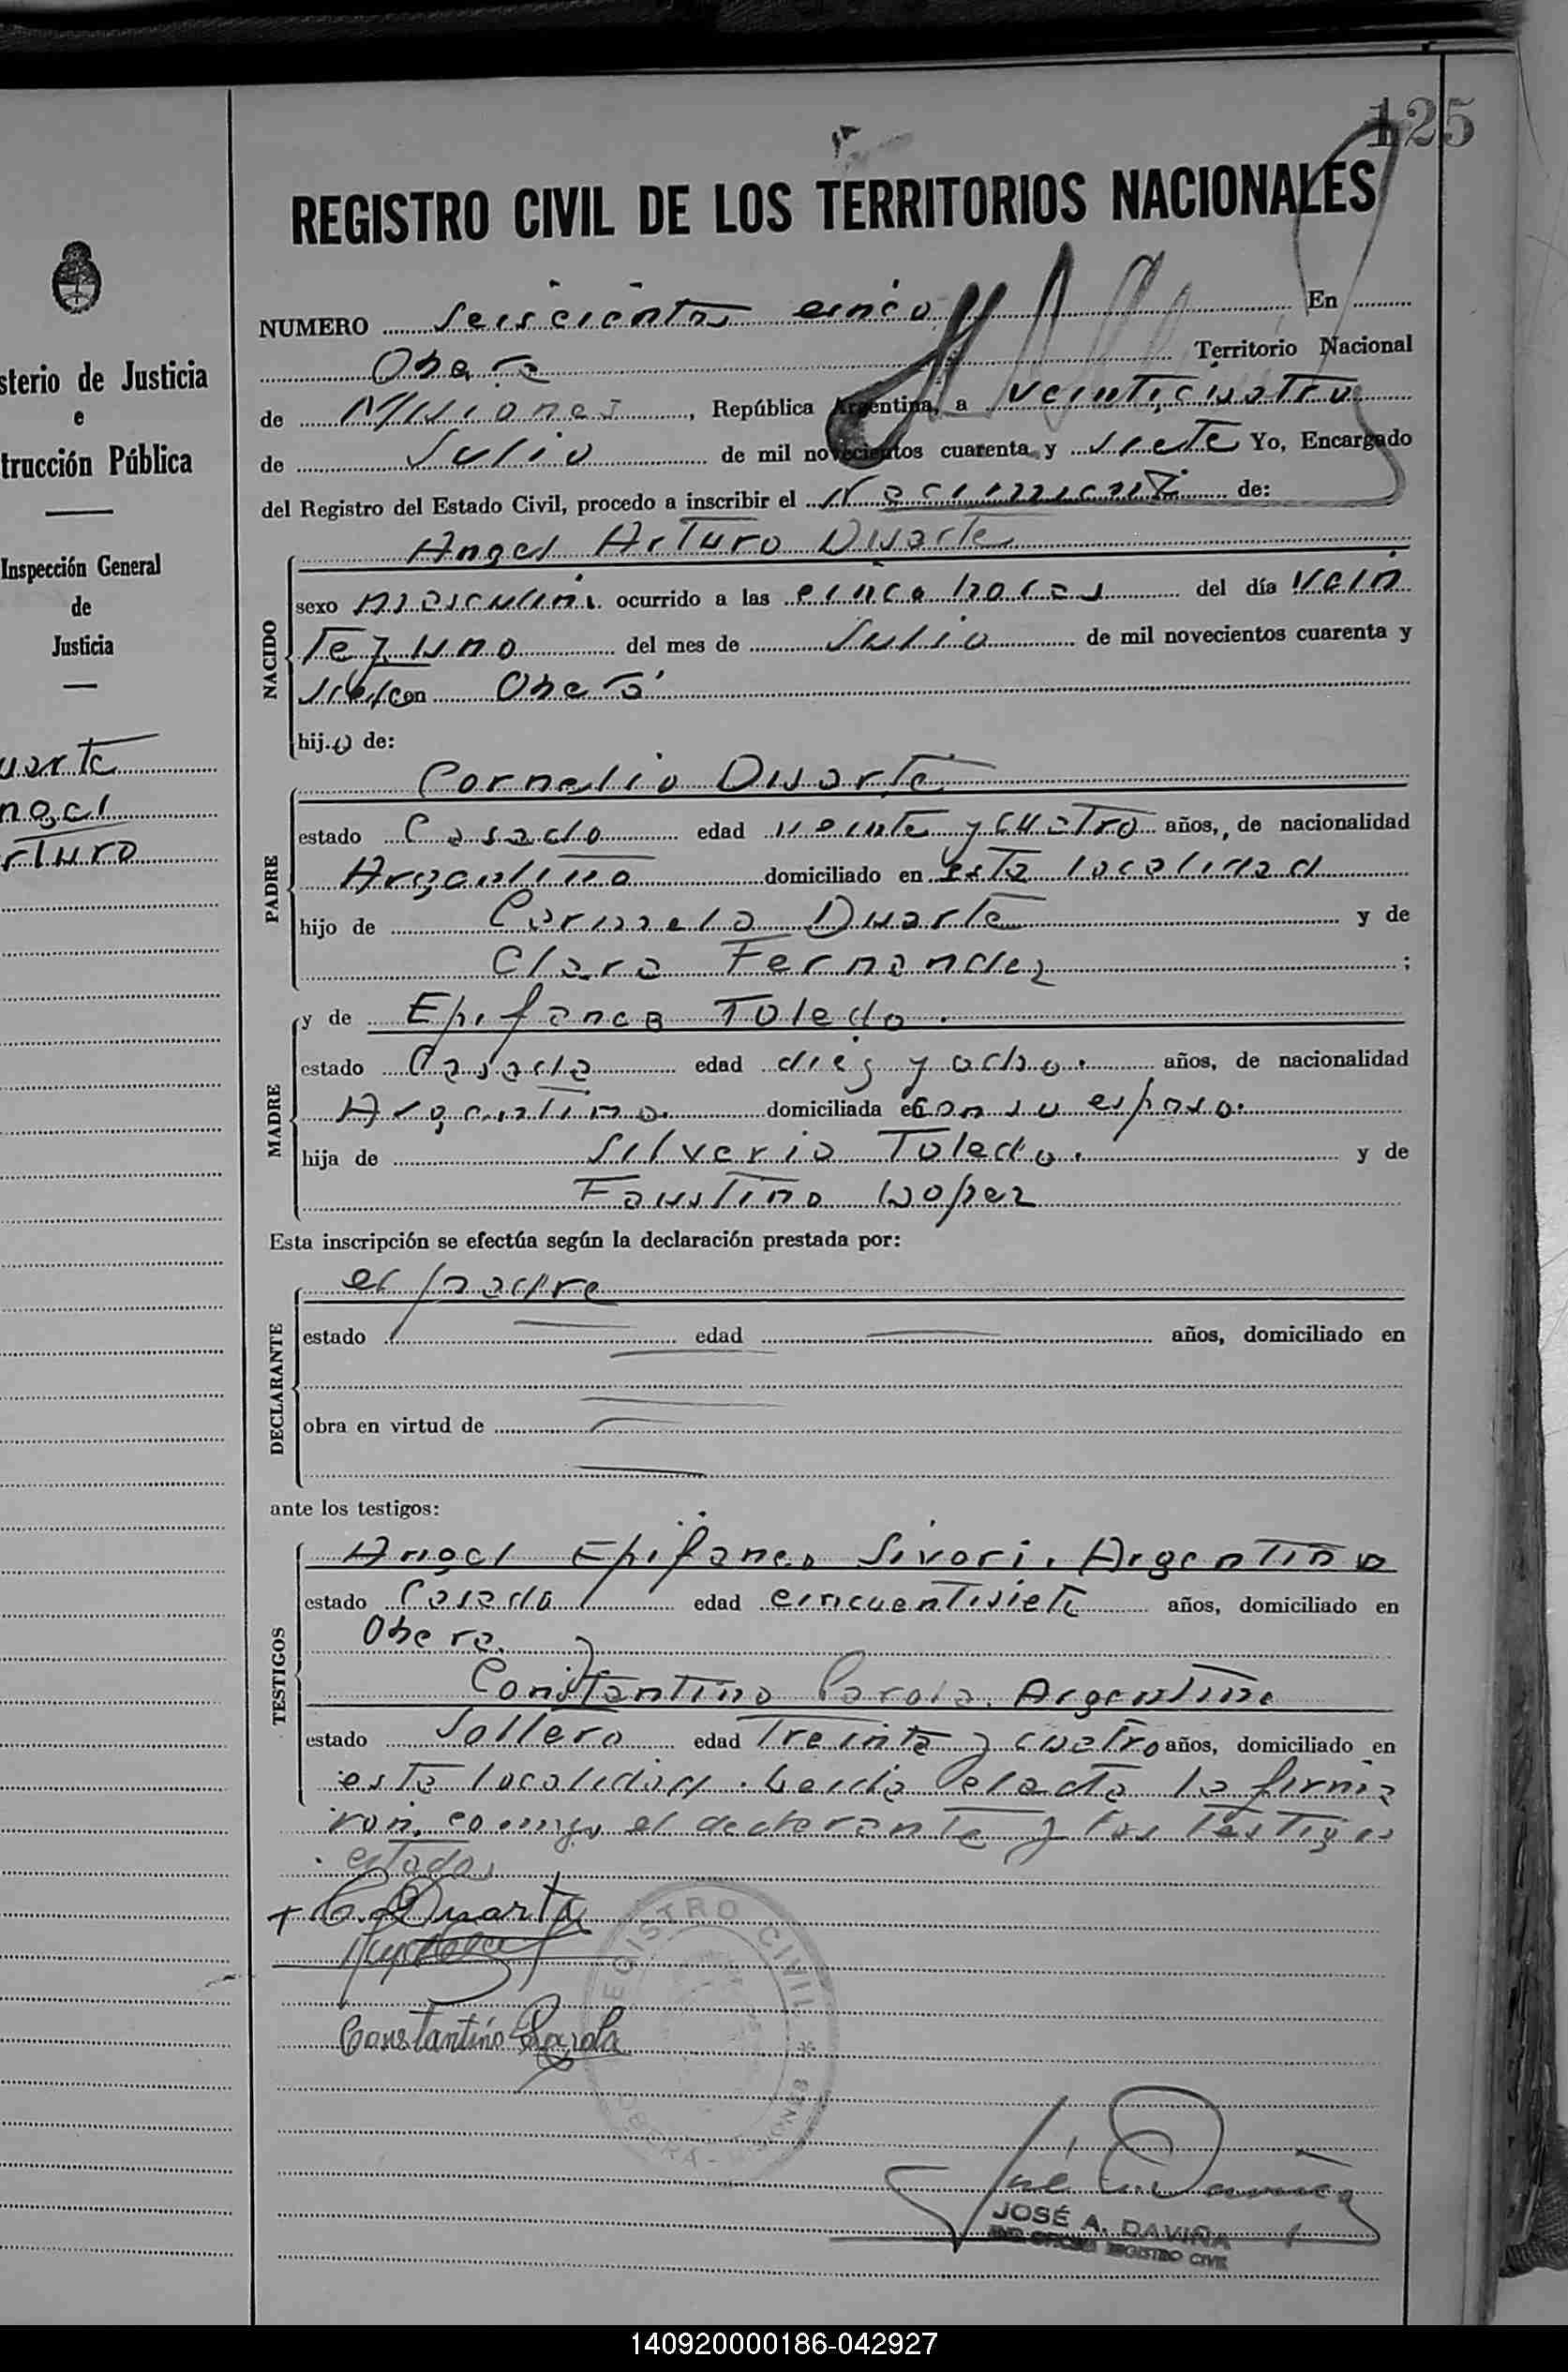 125
REGISTRO CIVIL DE LOS TERRITORIOS NACIONALES
NUMERO Seiscientos cinco En
Obera Territorio Nacional
de Misiones, República Argentina, a veinticuatro
de Julio de mil novecientos cuarenta y siete Yo, Encargado
del Registro del Estado Civil, procedo a inscribir el Nacimiento de:
Angel Arturo Duarte
NACIDO
sexo masculino ocurrido a las cinco horas del día Vein
te y uno del mes de Julio de mil novecientos cuarenta y
siete en Oberá
hijo de:
Cornelio Duarte
PADRE
estado Casado edad veinte y cuatro años, de nacionalidad
Argentino domiciliado en esta localidad
hijo de Duarte y de
Clara Fernandez ;
MADRE
y de Epifanea Toledo.
estado Casada edad diez y ocho. años, de nacionalidad
Argentina. domiciliada con su esposo.
hija de Silverio Toledo. y de
Faustina Lopez
Esta inscripción se efectúa según la declaración prestada por:
el padre
DECLARANTE
estado edad años, domiciliado en
obra en virtud de
ante los testigos:
TESTIGOS
Angel Epifaneo Sivori. Argentino
estado Casado edad cincuentisiete años, domiciliado en
Obera. y
Constantino Parola. Argentino
estado Soltero edad Treinta y cuatro años, domiciliado en
esta localidad. Leida el acta la firma
ron conmigo el declarante y los Testigos
citados
+ C. Duarte
Constantino Parola
REGISTRO CIVIL * OBERA - MISIONES
JOSÉ A. DAVIÑA
REGISTRO CIVIL
sterio de Justicia
e
trucción Pública
Inspección General
de
Justicia
uarte
ngel
rturo
140920000186-042927